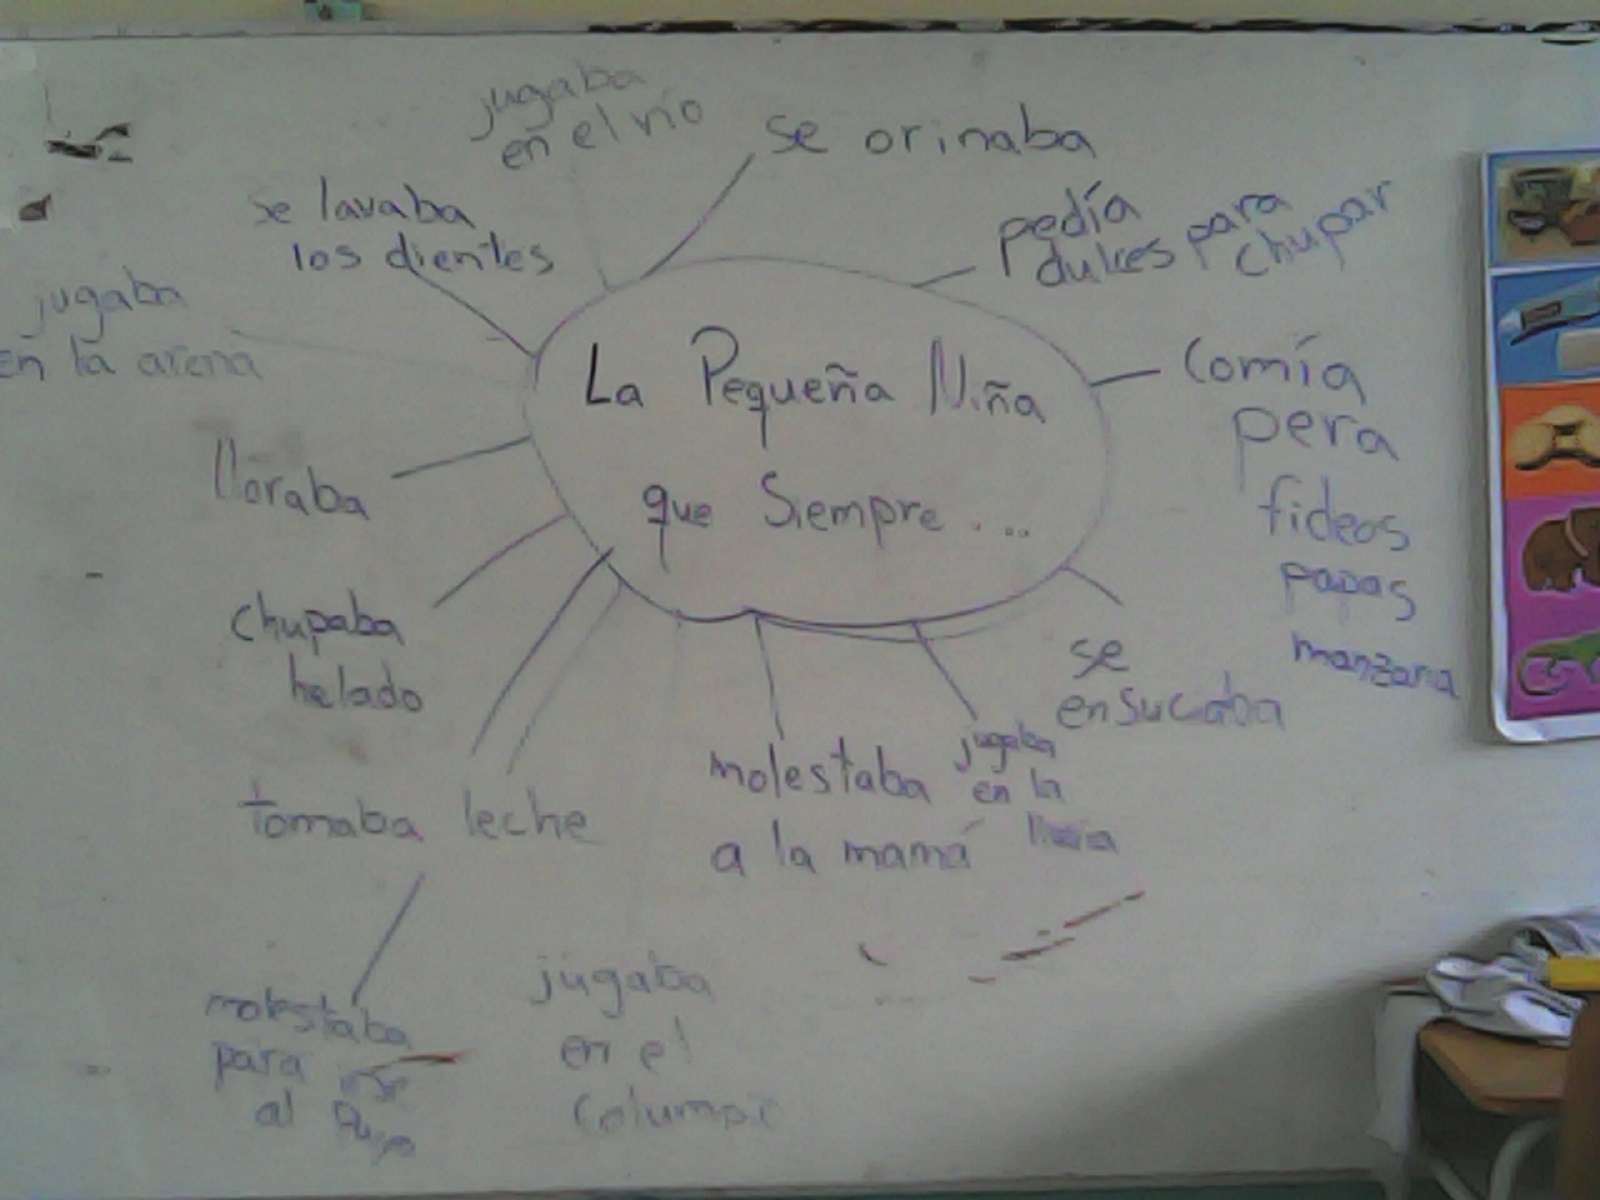 La Pequeña Niña
que Siempre ....
jugaba
en el río
se orinaba
pedía
dulces para
chupar
Comía
pera
fideos
papas
manzana
se
ensuciaba
jugaba
en la
lluvia
molestaba
a la mamá
jugaba
en el
Columpi
tomaba leche
molestaba
para
al
chupaba
helado
lloraba
jugaba
en la arena
se lavaba
los dientes